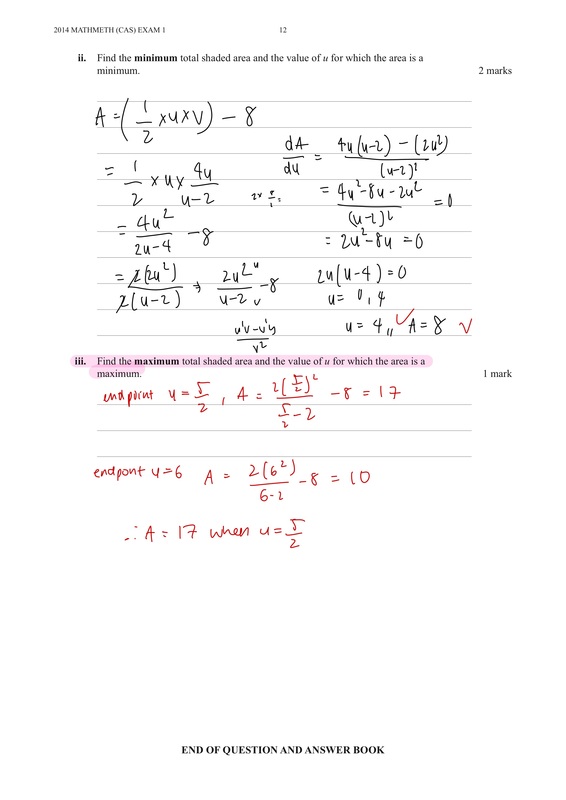 2014 MATHMETH (CAS) EXAM 1 12
ii. Find the minimum total shaded area and the value of u for which the area is a
minimum. 2 marks
A = (1/2 × u × v) − 8
= 1/2 × u × 4u/(u−2)
= 4u²/(2u−4) − 8
= 2(2u²)/2(u−2) → 2u²/(u−2) − 8
u
v
u'v − v'u / v²
2 × 8/1 =
dA/du = (4u(u−2) − (2u²))/(u−2)²
= (4u² − 8u − 2u²)/(u−2)² = 0
= 2u² − 8u = 0
2u(u−4) = 0
u = 0, 4
u = 4,, ✓ A = 8 ✓
iii. Find the maximum total shaded area and the value of u for which the area is a
maximum. 1 mark
endpoint u = 5/2, A = 2(5/2)²/(5/2 − 2) − 8 = 17
endpoint u = 6 A = 2(6²)/(6−2) − 8 = 10
∴ A = 17 when u = 5/2
END OF QUESTION AND ANSWER BOOK